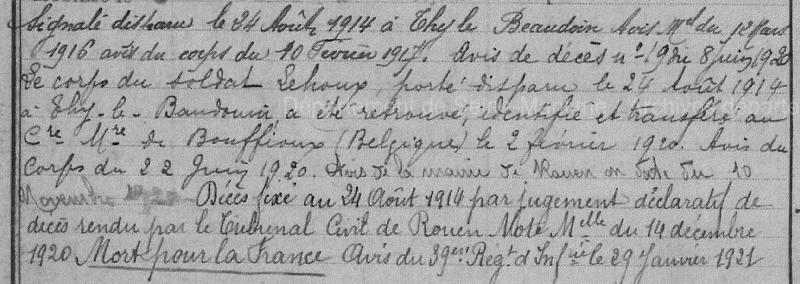 Signalé disparu le 24 Août 1914 à Thy le Beaudoin Avis Mel du 12 Mars
1916 avis du corps du 10 Février 1917. Avis de décès no 19 du 8 juin 1920
Le corps du soldat Lehoux, porté disparu le 24 Août 1914
à Thy-le-Baudouin, a été retrouvé, identifié et transféré au
Cre Mre de Bouffioux (Belgique) le 2 février 1920. Avis du
Corps du 22 Juin 1920. Avis de la mairie de Rouen en date du 10
Novembre 1920 Décès fixé au 24 Août 1914 par jugement déclaratif de
décès rendu par le Tribunal Civil de Rouen Note Melle du 14 décembre
1920 Mort pour la France Avis du 39em Regt d'Infrie le 29 Janvier 1921